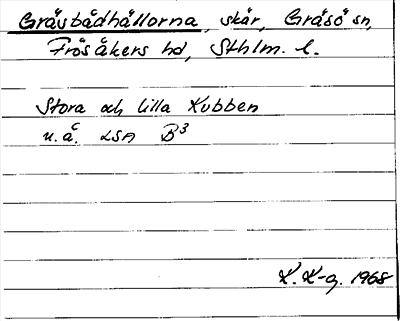 Gräsbådhällorna, skär, Gräsö sn,
Frösåkers hd, Sthlm. l.
Stora och Lilla Kubben
n.å. LSA B3
K. K-g. 1968